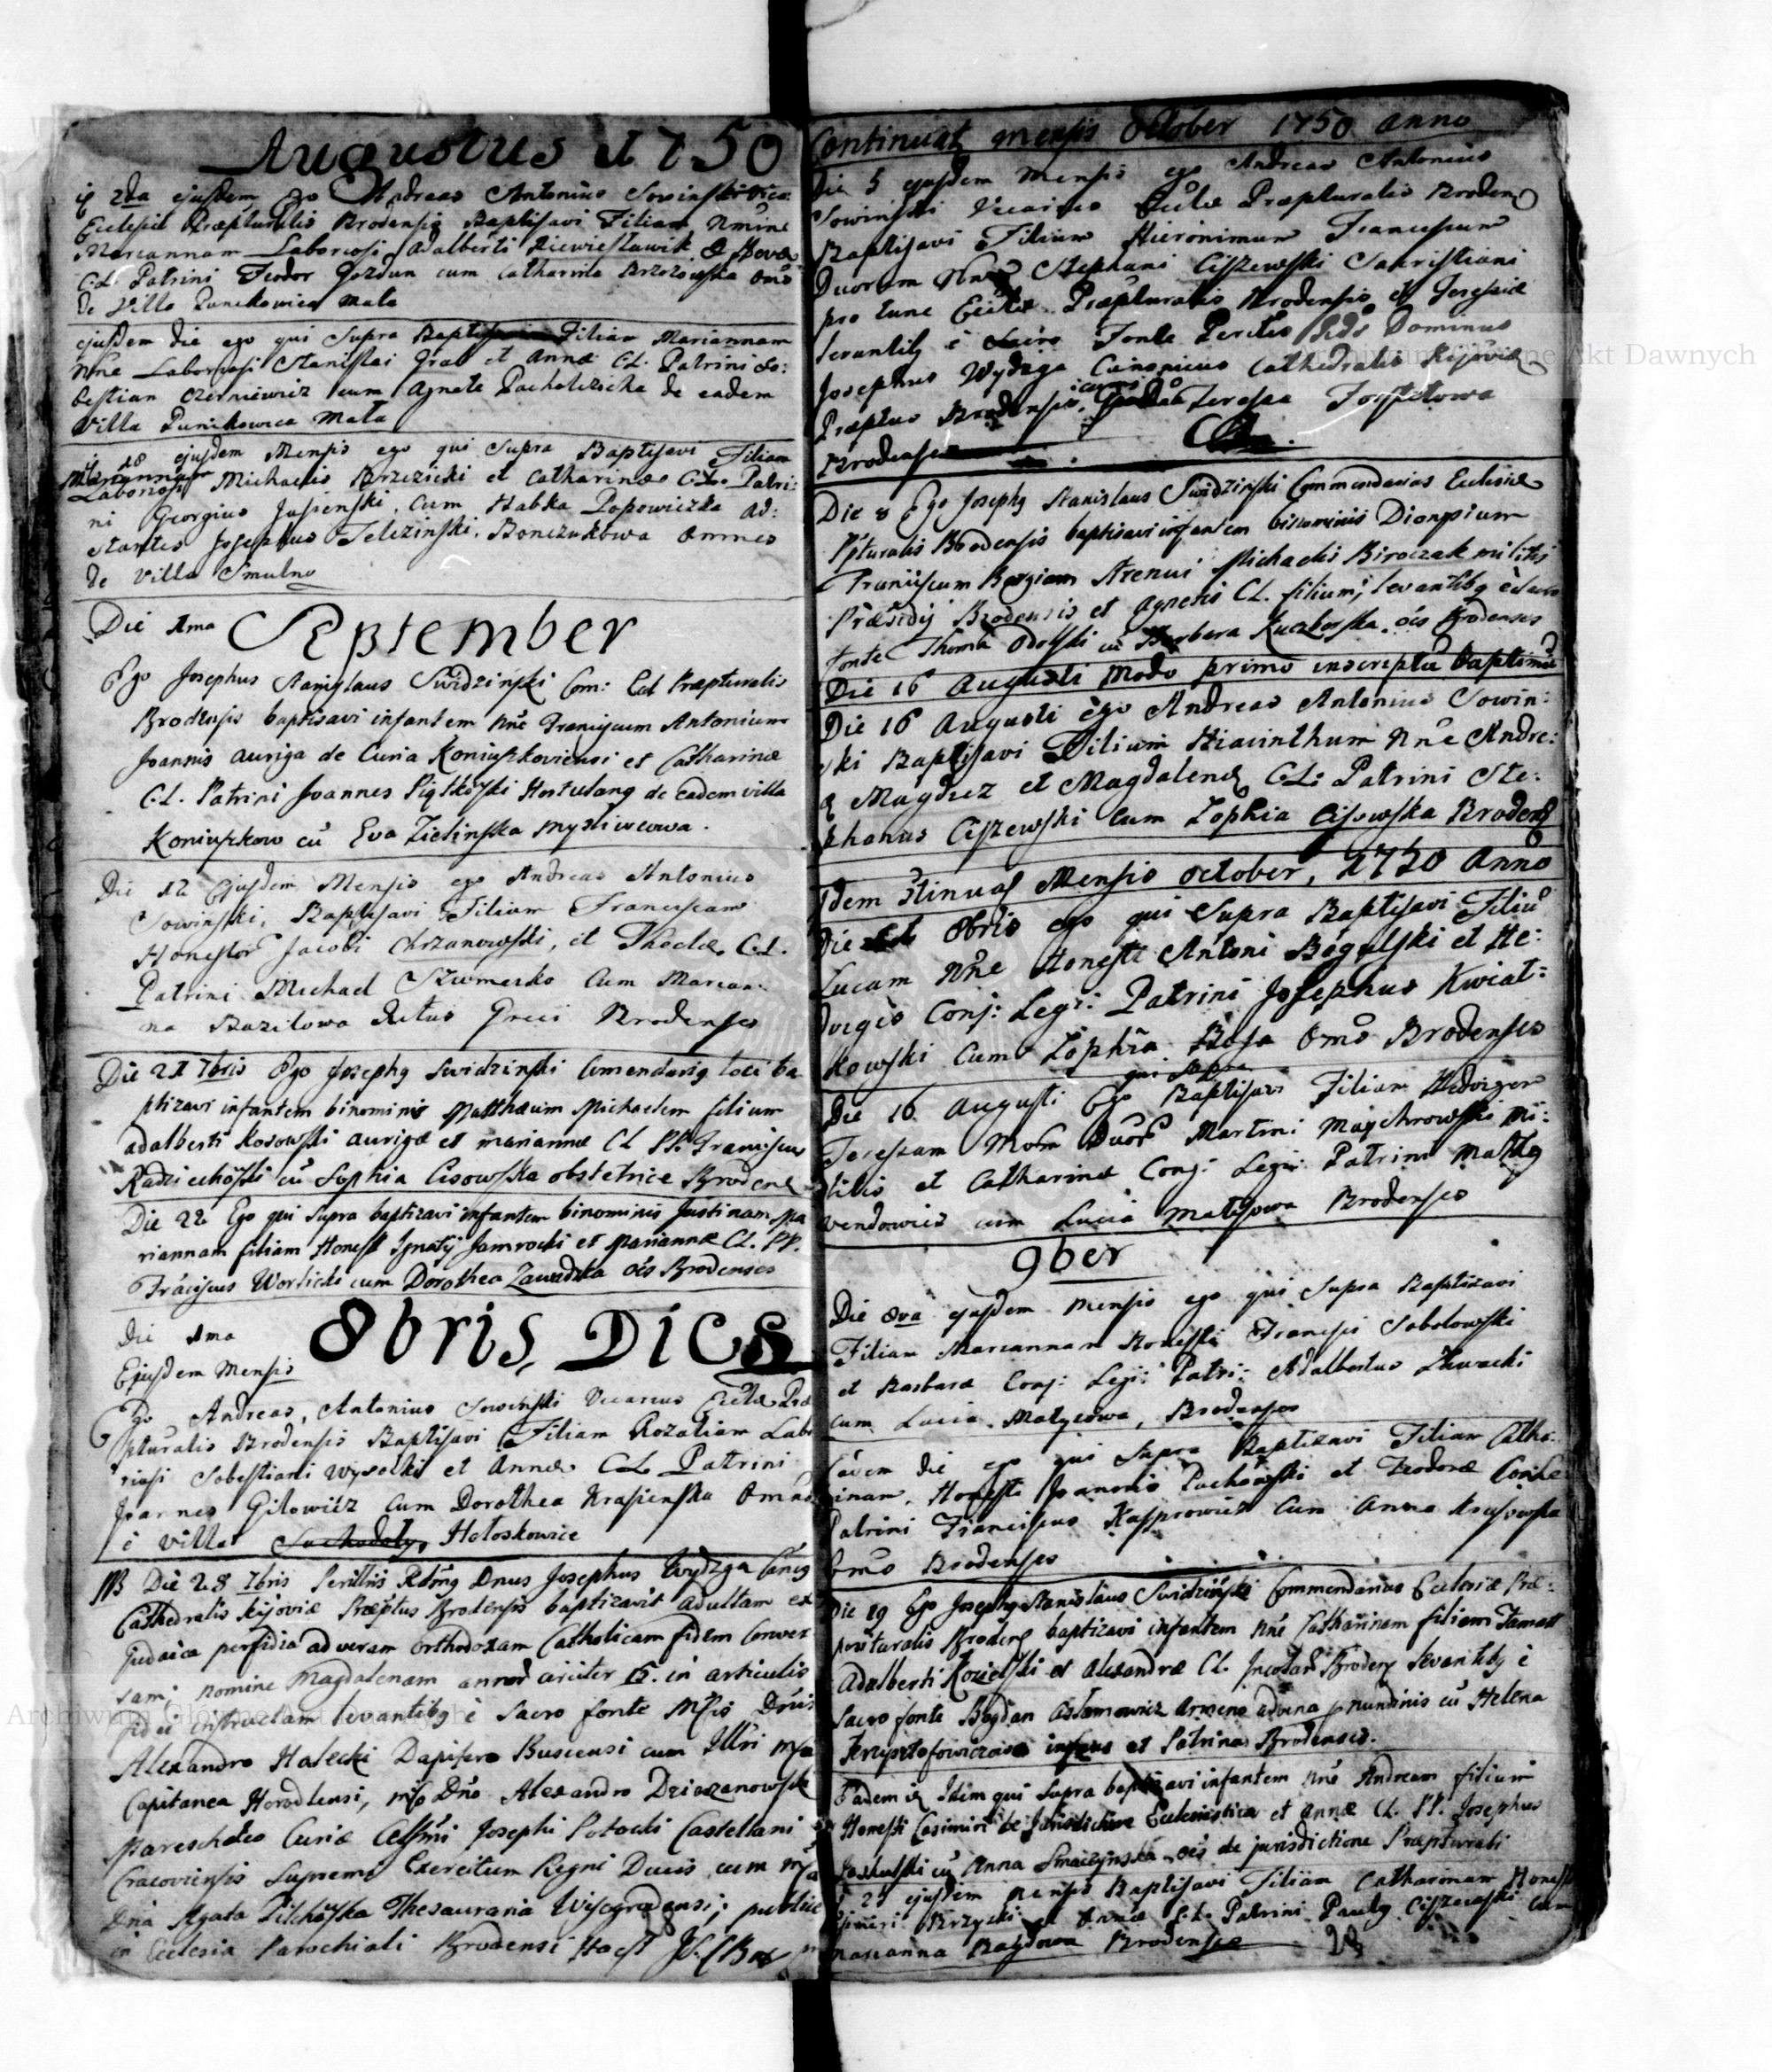 Augustus 1750
2da ejusdem Ego Andreas Antonius Sowinski Vica:
Ecclesiæ Præpturalis Brodensis Baptisavi Filiam Nmine
Mariannam Laboriosi Adalberti
C.L. Patrini Feodor Gozdun cum Catharina Brzozowska
de Villa Punikowica Mała
ejusdem die ego qui Supra Filiam Mariannam
Nne Laboriosi Stanislai Grab et Annæ C.L. Patrini Se:
bestian Czerniewicz cum Agnete Pacholczicka de eadem
Villa Punikowica Mała
18 ejusdem Mensis ego qui Supra Baptisavi Filiam
Mariannam
Laboriosi Michaelis Brzezicki et Catharinæ C.L. Patri:
ni Georgius Jasienski, cum Habka Popowiczka Ad:
stantes Josephus Telezinski, Bonczukowa Omnes
de Villa Smulno
Die 1ma September
Ego Josephus Stanislaus Swidzinski Com: Ecl Præpturalis
Brodensis baptisavi infantem nne Franciscum Antonium
Joannis auriga de Curia Koniuszkoviensi et Catharinæ
C.L. Patrini Joannes Piątkowski Hortulang de eadem villa
Koniuszkow cu Eva Zielinska mysliwcowa.
Die 12 Ejusdem Mensis ego Andreas Antonius
Sowinski, Baptisavi Filiam Franciscam
Honestor Jacobi Chrzanowski, et Theclæ C.L.
Patrini Michael Szumesko Cum Marian:
na Bazilowa Ritus Greci Brodenses
Die 21 7bris Ego Josephg Swidzinski Comendarig loci ba
ptizavi infantem binominis Matthæum Michaelem filium
adalberti Kosowski aurigæ et mariannæ CL PP. Franciscus
Radziechowski cu Sophia Cisowska obstetrice Brodens
Die 22 Ego qui Supra baptizavi infantem binominis Justinam Ma
riannam filiam Honest Ignatij Jamrocki et Mariannæ CL. PP.
Fraciscus Worlicki cum Dorothea Zawadzka oes Brodenses
Die 1ma 8bris, Dies
Ejusdem Mensis
Ego Andreas, Antonius Sowinski Vicarius Eccłæ Præ
pturalis Brodensis Baptisavi Filiam Rozaliam Labo
riosi Sobestiani Wysocki et Annæ C.L. Patrini
Joannes Gilowicz Cum Dorothea Krasienska Omnes
è villa Suchodoły, Hołoskowice
NB Die 28 7bris Perillris Rdmg Dnus Josephus Wydzga Canog
Cathedralis Kijoviæ Præptus Brodensis baptizavit adultam ex
judaica perfidia ad veram orthodoxam Catholicam fidem Conver
sam; nomine Magdalenam annor circiter 15. in articulis
fidei instructam levantibg è Sacro fonte Mfis Dnis
Alexandro Hałecki Dapifero Buscensi cum Illri Mfa
Capitanea Horodlensi, mfo Dno Alexandro Dziezanowski
Mareschalco Curiæ Celsmi Josephi Potocki Castellani
Cracoviensis Supremi Exercituum Regni Ducis cum Mfa
Dna Agata Pilchowska Thesauraria Wisogrodensi; publice
in Ecclesia Parochiali Brodensi
Continuat mensis October 1750 anno
Die 5 ejusdem Mensis ego Andreas Antonius
Sowinski Vicarius Eccłæ Præpturalis Brodens
Baptisavi Filium Hieronimum Franciscum
Duorum Nnū Stephani Ciszewski Sacristiani
pro tunc Eccłæ Præpturalis Brodensis et Teresiæ
levantibg è Sacro Fonte Perillris Rds Dominus
Josephus Wydzga Canonicus Cathedralis Kijoviæ
Præptus Brodensis, cum Teresa Forsztowa
Brodenses
Die 8 Ego Josephg Stanislaus Swidzinski Commendarius Eclesiæ
Ppturalis Brodensis baptisavi infantem binominis Dionysium
Franciscum Borgiam Strenui Michaelis Biroczak militis
Præsidij Brodensis et Agnetis CL. filium; levantibg è Sacro
fonte Thoma Odolski cu Barbara Kuczborska. oes Brodenses
Die 16 Augusti Modo primo inscriptū baptismū
Die 16 Augusti ego Andreas Antonius Sowin:
ski Baptisavi Filium Hiacinthum Nne Andre:
æ Magdziz et Magdalenæ C.L: Patrini Ste:
phanus Ciszewski Cum Zophia Cisowska Brodens
Idem Stinuat Mensis October, 1750 Anno
Die 8bris ego qui Supra Baptisavi Filiū
Lucam Nne Honesti Antoni Bogulski et He:
dvigis Conj: Legi: Patrini Josephus Kwiat:
kowski Cum Zophia Rosa Oms Brodenses
Die 16 Augusti Ego qui Supra Baptisavi Filiam Hedvigem
Teresam Martini Majchrowski Mi:
litis et Catharinæ Conj: Legi: Patrini Mathg
wendowicz cum Lucia Matysowa Brodenses
9ber
Die 8va ejusdem Mensis ego qui Supra Baptizavi
Filiam Mariannam Honesti Francisci Sobolowski
et Barbaræ Conj: Legi: Patri: Adalbertus Zawacki
cum Lucia Matysowa, Brodenses
Eadem die ego qui Supra Baptizavi Filiam Catha:
rinam, Honesti Joannis Pachowski et Teodoræ
Patrini Franciscus Kasprowicz Cum Anna Krusowska
Oms Brodenses
Die 19 Ego Josephg Stanislaus Swidzinski Commendarius Ecclesiæ Præ:
positurалis Brodens baptizavi infantem nne Catharinam filiam
Adalberti Kozielski et Alexandræ CL. Incolar Brodens levantibg è
Sacro fonte Bogdan Armeno advena p nundinis cu Helena
Krzysztofowiczowa et Patrinos Brodenses.
Eadem Idem qui Supra baptizavi infantem nne Andream filium
Honesti Casimiri de Jurisdictione Ecclesiastica et Annæ CL. PP. Josephus
cu Anna Smaczynska oes de jurisdictione Præpturali
ejusdem Mensis Baptisavi Filiam Catharinam Honesti
Krzyzki et Annæ C.L. Patrini Paulg Ciszewski Cum
Marianna Brodenses
Archiwum Główne Akt Dawnych